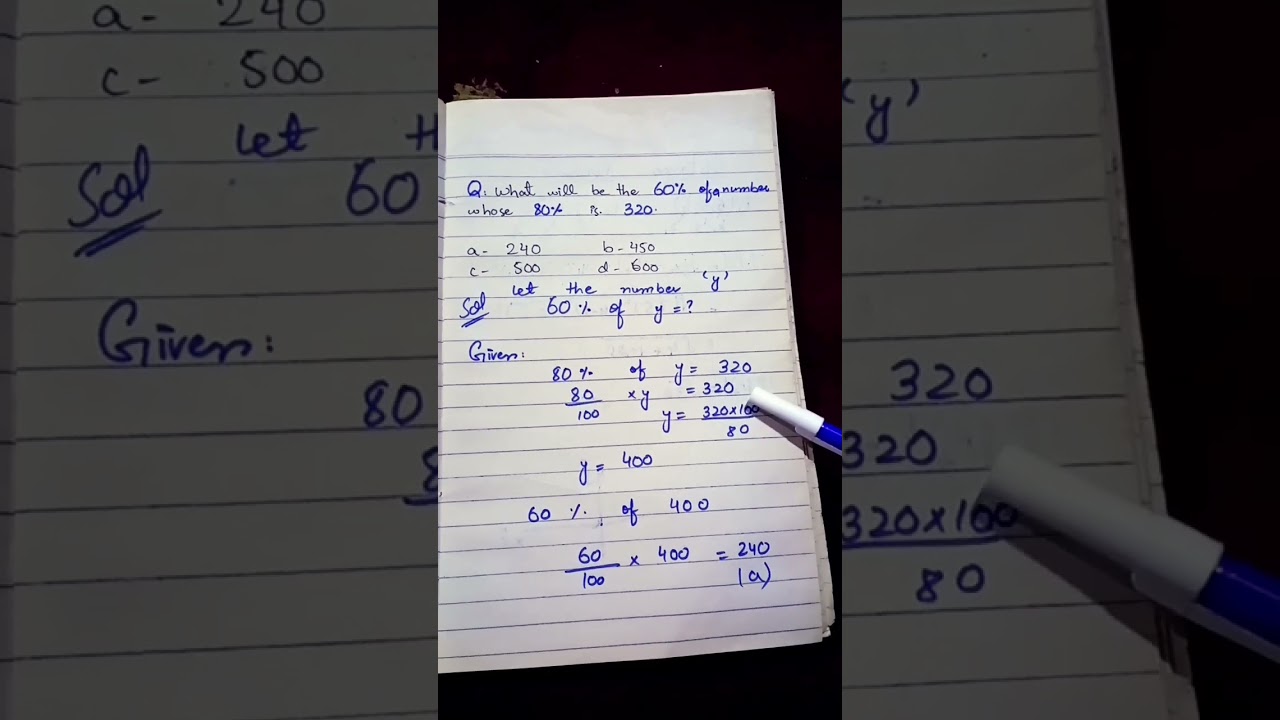 Q. What will be the 60% of a number
whose 80% is 320.
a- 240 b- 450
c- 500 d- 600
Let the number 'y'
Sol 60% of y = ?
Given:
80% of y = 320
80/100 × y = 320
y = 320×100/80
y = 400
60 % of 400
60/100 × 400 = 240
(a)